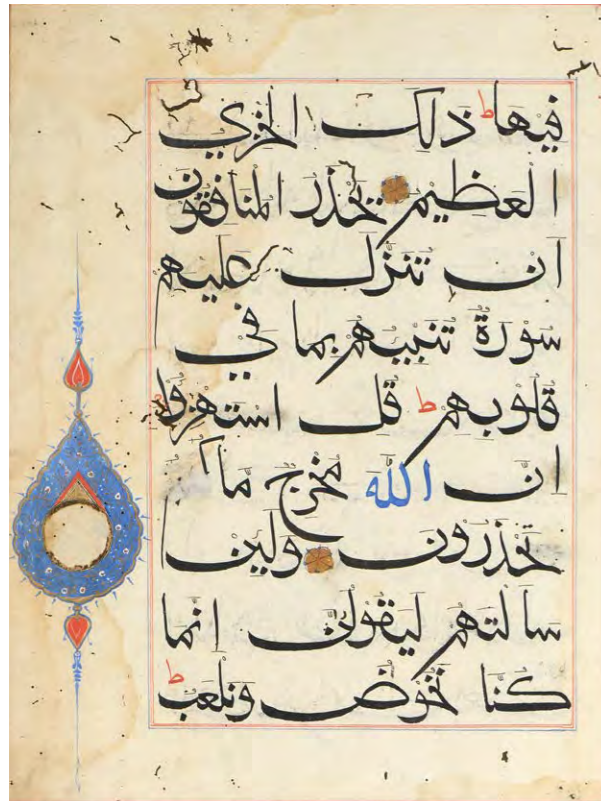 فيها ط ذلك الخزي
العظيم يحذر المنافقون
ان تنزل عليهم
سورة تنبيهم بما في
قلوبهم ط قل استهزوا
ان الله مخرج ما
تحذرون ولين
سالتهم ليقولن انما
كنا نخوض ونلعب ط